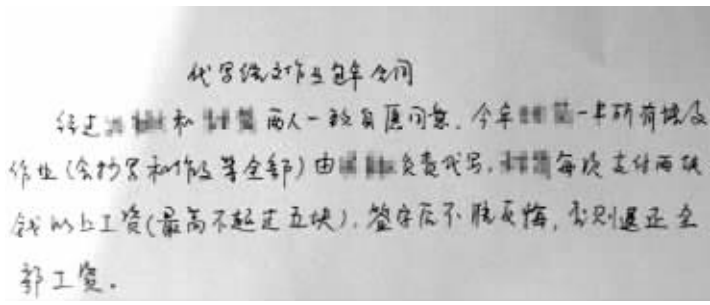 代写语文作业包年合同
经过 和 两人一致自愿同意，今年 一年所有语文
作业（含抄写和作文等全部）由 负责代写， 每次支付两块
钱以上工资（最高不超过五块），签字后不能反悔，否则退还全
部工资。